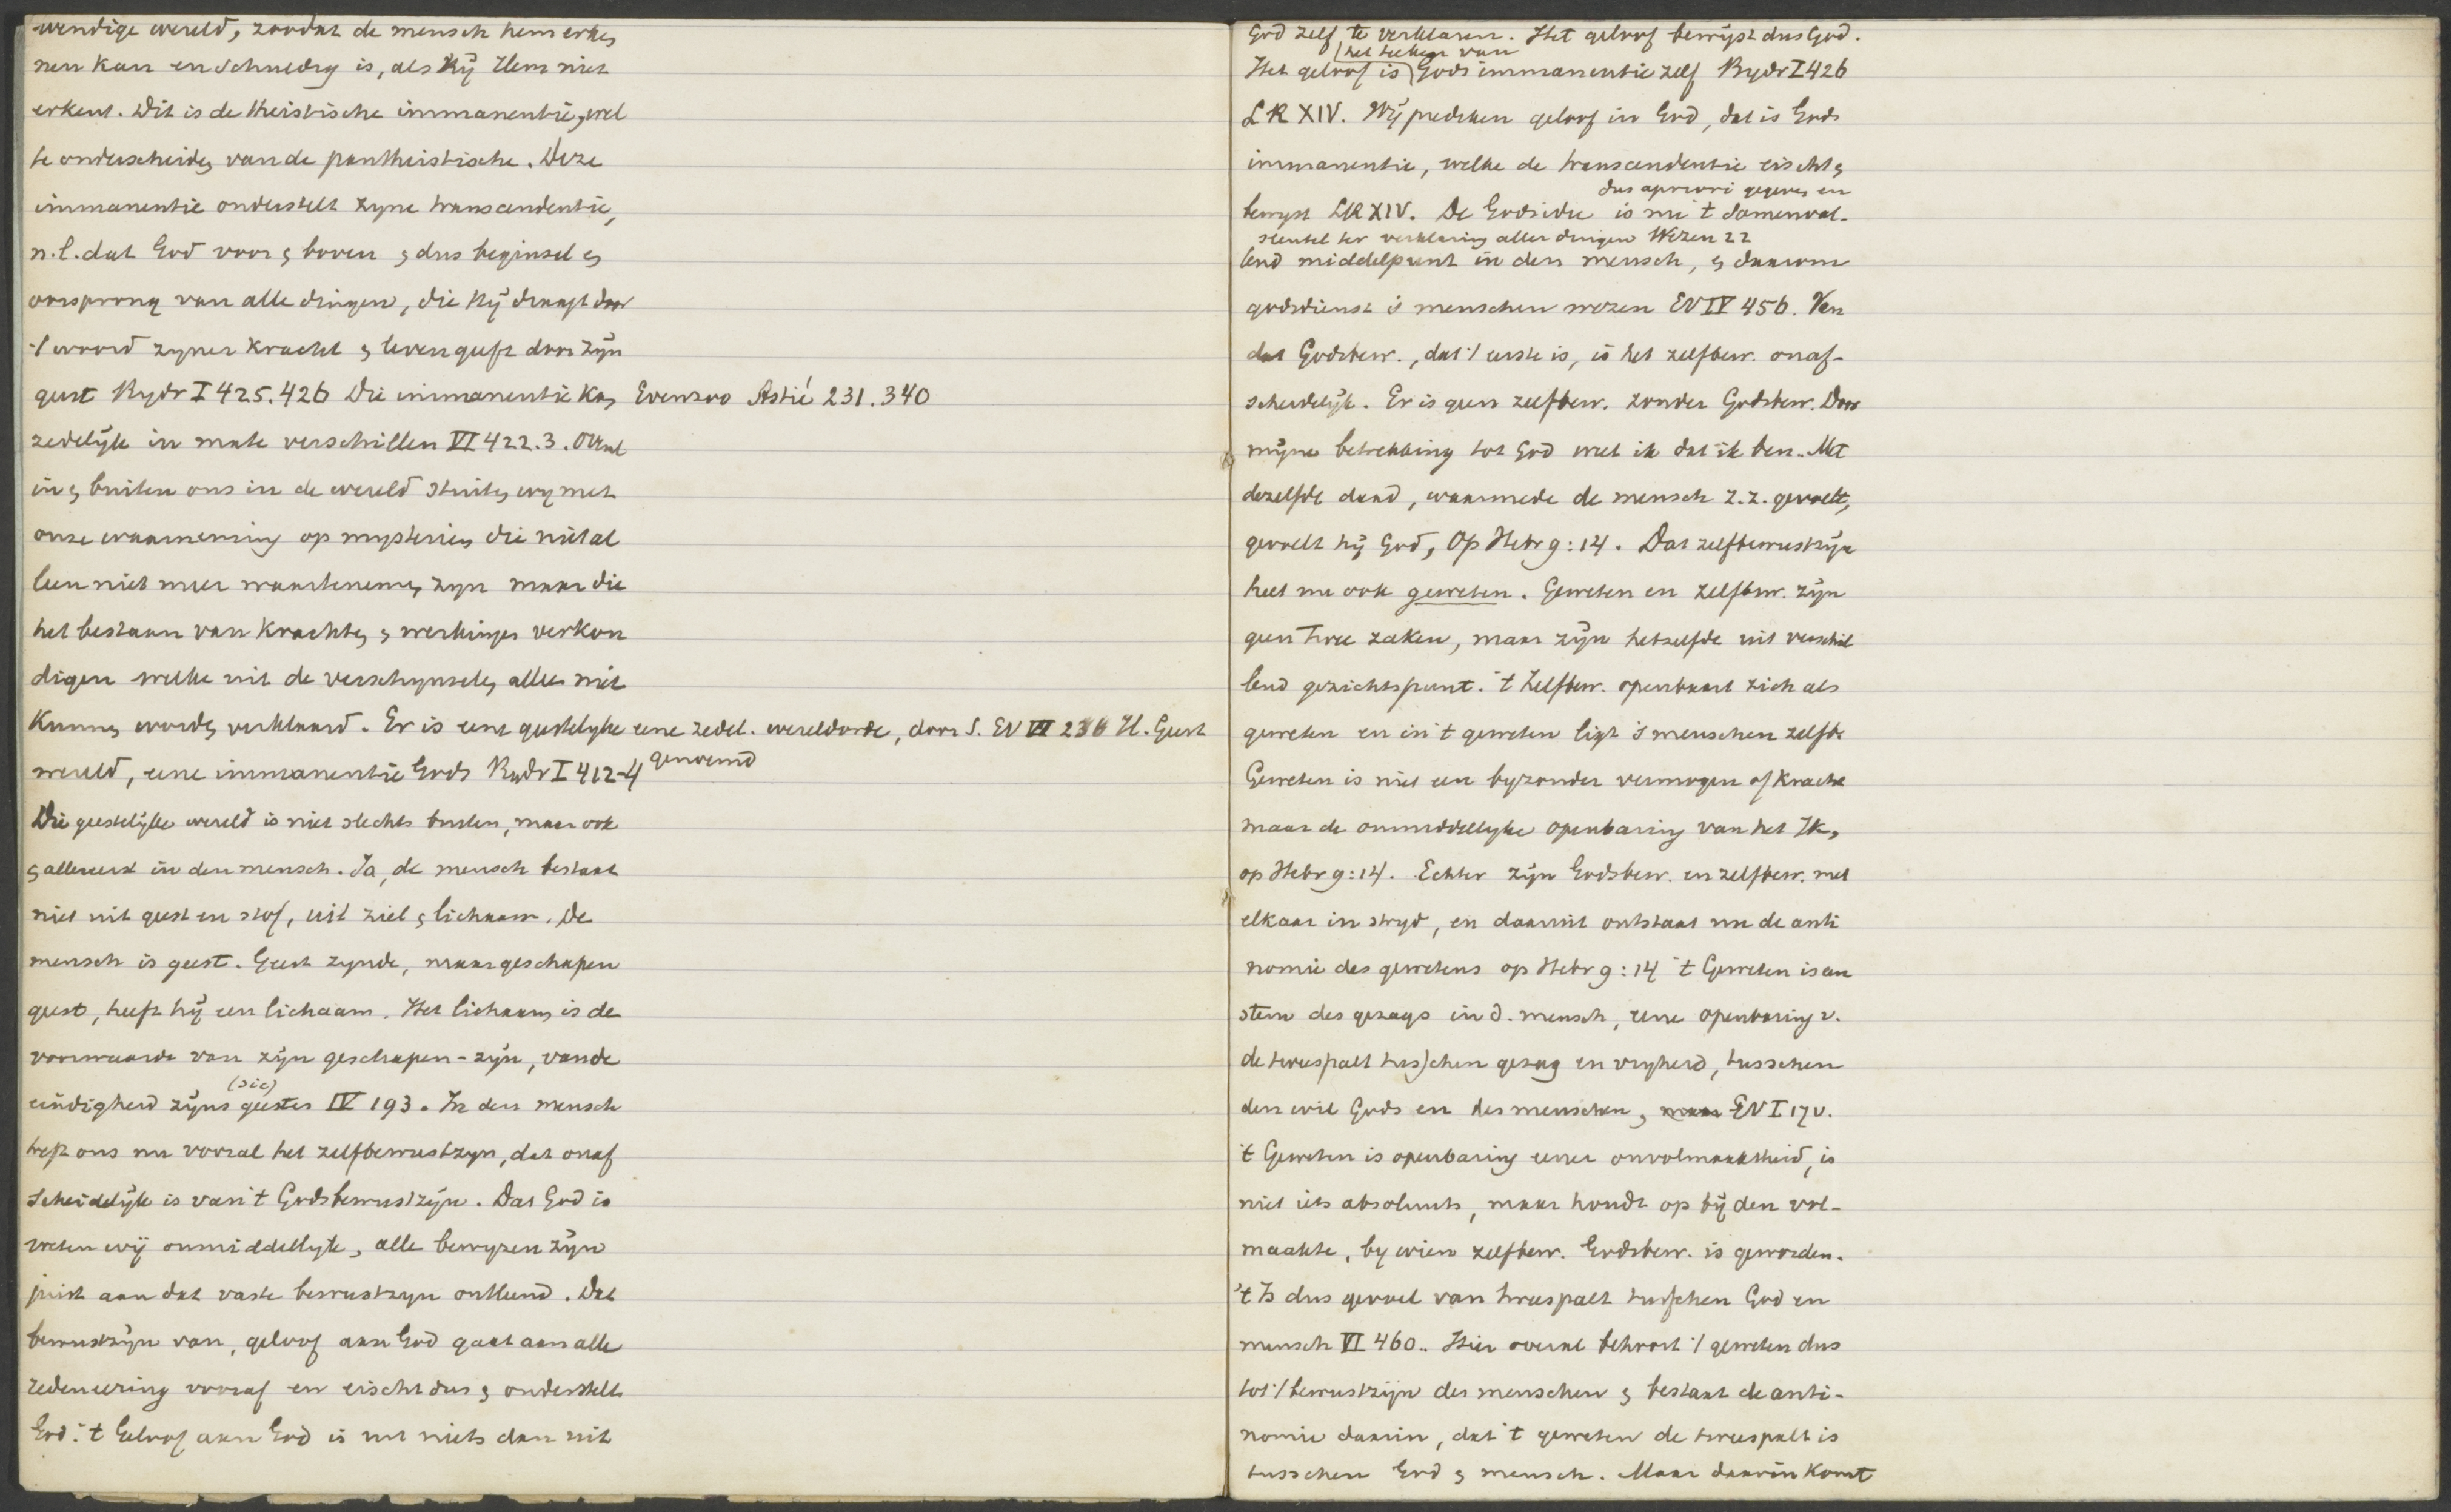 wendige wereld, zoodat de mensch hem erken
nen kan en schuldig is, als hij Hem niet
erkent. Dit is de theistische immanentie, wel
te onderscheiden van de pantheistische. Deze
immanentie onderstelt zyne transcendentie,
n.l. dat God voor & boven & dus beginsel &
oorsprong van alle dingen, die hij draagt door
't woord zyner kracht & leven geeft door zijn
geest Bydr I 425.426 Die immanentie kan Evenzoo Astié 231.340
zedelijk in mate verschillen VI 422.3. Overal
in & buiten ons in de wereld stuiten wy met
onze waarneming op mysterien die niet al
leen niet meer waartenemen zyn maar die
het bestaan van krachten & werkingen verkon
digen welke uit de verschynselen alleen niet
kunnen worden verklaard. Er is eene geestelyke eene zedel. wereldorde, door S. EV VII 236 H. Geest
wereld, eene immanentie Gods Bydr I 412-4 genoemd
Die geestelijke wereld is niet slechts buiten, maar ook
& allereerst in den mensch. Ja, de mensch bestaat
niet uit geest en stof, uit ziel & lichaam. De
mensch is geest. Geest zynde, maar geschapen
geest, heeft hij een lichaam. Het lichaam is de
voorwaarde van zijn geschapen-zijn, van de
(sic)
eindigheid zijns geestes IV 193. In den mensch
treft ons nu vooral het zelfbewustzyn, dat onaf
scheidelijk is van 't Godsbewustzijn. Dat God is
weten wij onmiddellyk, alle bewyzen zijn
juist aan dat vaste bewustzyn ontleend. Dat
bewustzijn van, geloof aan God gaat aan alle
redeneering vooraf en eischt dus & onderstelt
God. 't Geloof aan God is nu niets dan uit
God zelf te verklaren. Het geloof bewijst dus God.
het teeken van
Het geloof is Gods immanentie zelf Bydr I 426
LR XIV. Wij prediken geloof in God, dat is Gods
immanentie, welke de transcendentie eischt &
dus apriori gegeven en
bewyst LR XIV. De Godsidee is nu 't samenval-
sleutel ter verklaring aller dingen Wezen 22
lend middelpunt in den mensch, & daarom
godsdienst 's menschen wezen EV IV 456. Van
dat Godsbew., dat 't eerste is, is het zelfbew. onaf-
scheidelijk. Er is geen zelfbew. zonder Godsbew. Door
mijne betrekking tot God weet ik dat ik ben. Met
dezelfde daad, waarmede de mensch z.z. gevoelt,
gevoelt hij God, Op Hebr 9:14. Dat zelfbewustzijn
heet nu ook geweten. Geweten en zelfbew. zijn
geen twee zaken, maar zijn hetzelfde uit verschil
lend gezichtspunt. 't Zelfbew. openbaart zich als
geweten en in 't geweten ligt 's menschen zelfb.
Geweten is niet een byzonder vermogen of kracht
maar de onmiddellyke openbaring van het Ik,
op Hebr 9:14. Echter zijn Godsbew. en zelfbew. met
elkaar in stryd, en daaruit ontstaat nu de anti
nomie des gewetens op Hebr 9:14 't Geweten is een
stem des gezags in d. mensch, eene openbaring v.
de tweespalt tusschen gezag en vryheid, tusschen
den wil Gods en des menschen, EV I 17v.
't Geweten is openbaring eener onvolmaaktheid, is
niet iets absoluuts, maar houdt op bij den vol-
maakte, by wien zelfbew. Godsbew. is geworden.
't Is dus gevoel van tweespalt tusschen God en
mensch VI 460.. Hier overal behoort 't geweten dus
tot 't bewustzijn des menschen & bestaat de anti-
nomie daarin, dat 't geweten de tweespalt is
tusschen God & mensch. Maar daarin komt